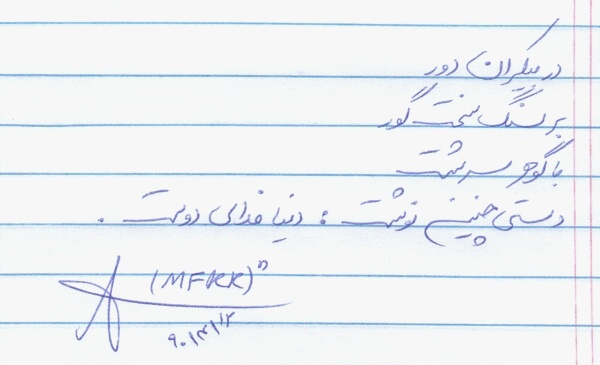 در بیکران دور
بر سنگ سخت گور
با گوهر سرشت
دستی چنین نوشت : دنیا فدای دوست .
(MFKK)
۹۰/۳/۱۲